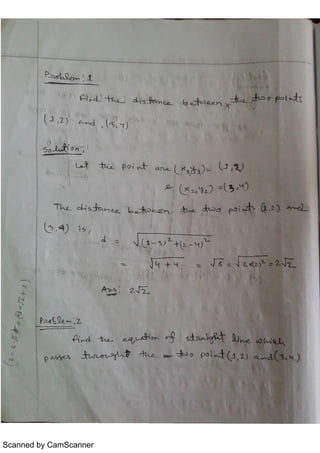 Problem: 1
Find the distance between the two points
(1,2) and (3,4)
Solution:
Let the point are (x₁,y₁)= (1,2)
& (x₂,y₂) =(3,4)
The distance between the two point (1,2) and
(3,4) is,
d = √(1-3)²+(2-4)²
= √4+4 = √8 = √2×(2)² = 2√2
Ans: 2√2
Problem,2
Find the equation of straight line which
passes throught the two point (1,2) and (3,4)
Scanned by CamScanner